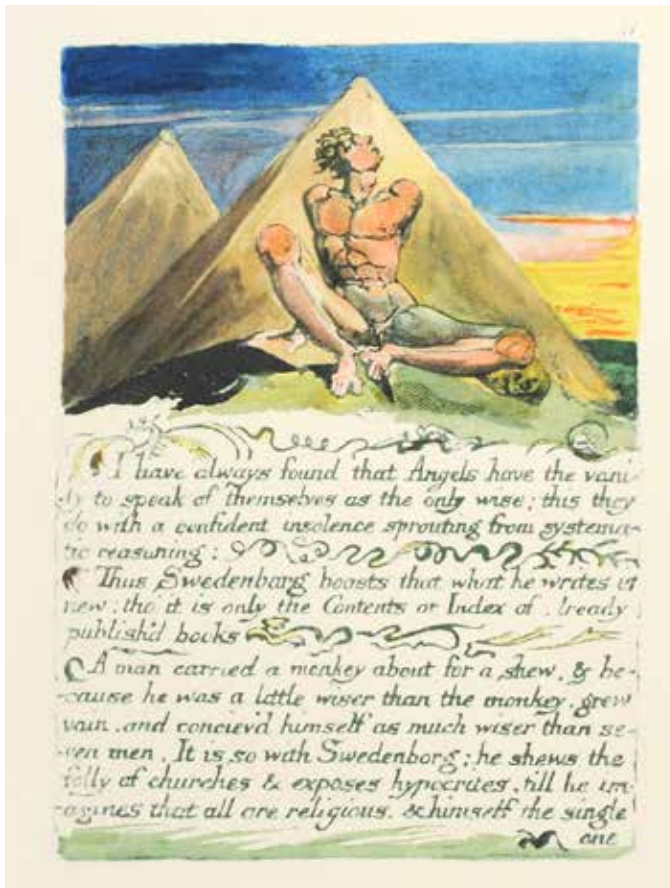 I have always found that Angels have the vani-
ty to speak of themselves as the only wise; this they
do with a confident insolence sprouting from systema-
tic reasoning:
Thus Swedenborg boasts that what he writes is
new; tho it is only the Contents or Index of already
publish'd books
A man carried a monkey about for a shew, & be-
cause he was a little wiser than the monkey, grew
vain, and conciev'd himself as much wiser than se-
ven men. It is so with Swedenborg; he shews the
folly of churches & exposes hypocrites, till he im-
agines that all are religious. & himself the single
one